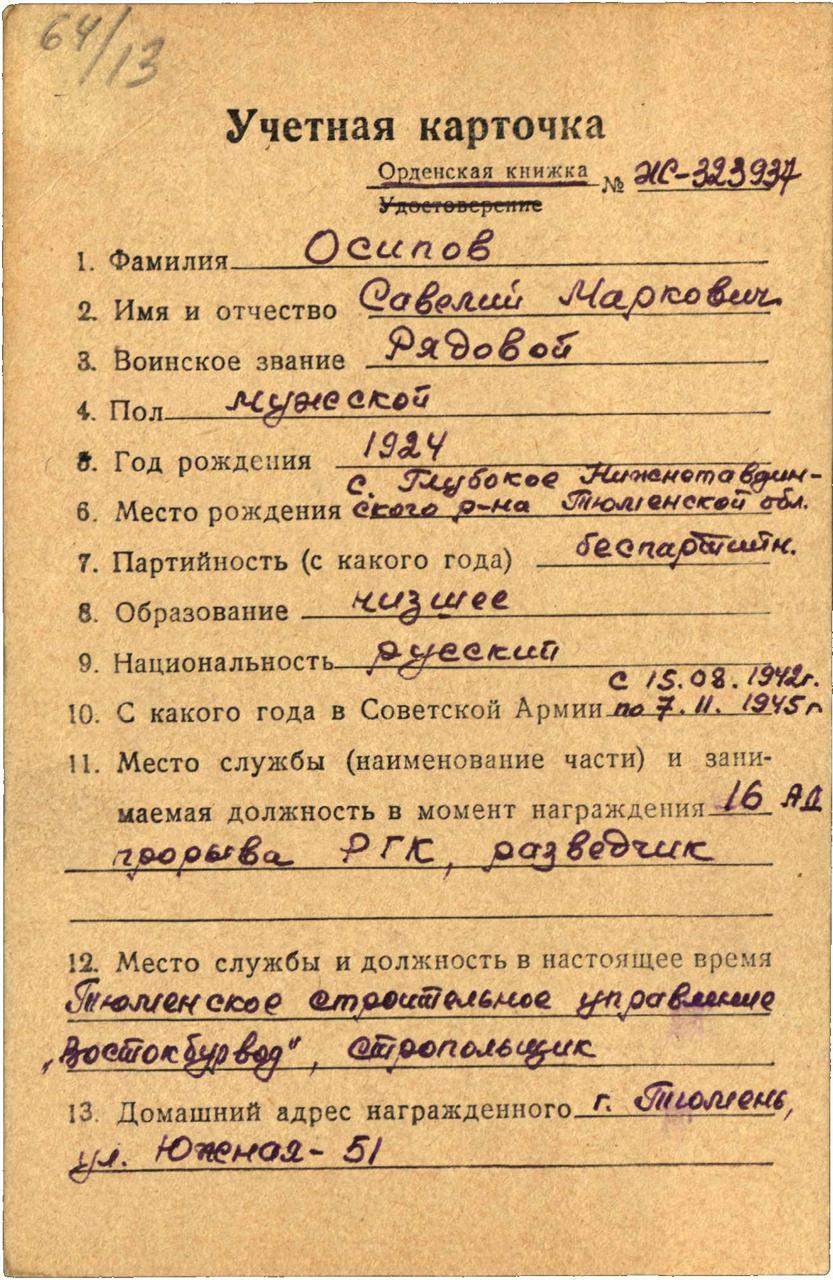 64/13
Учетная карточка
Орденская книжка № ЖС-323937
Удостоверение
1. Фамилия Осипов
2. Имя и отчество Савелий Маркович
3. Воинское звание Рядовой
4. Пол мужской
5. Год рождения 1924
с. Глубокое Нижнетавдин-
6. Место рождения ского р-на Тюменской обл.
7. Партийность (с какого года) беспартийн.
8. Образование низшее
9. Национальность русский
с 15.08.1942г.
10. С какого года в Советской Армии по 7.11.1945г
11. Место службы (наименование части) и зани-
маемая должность в момент награждения 16 АД
прорыва РГК, разведчик
12. Место службы и должность в настоящее время
Тюменское строительное управление
„Востокбурвод", стропольщик
13. Домашний адрес награжденного г. Тюмень,
ул. Южная - 51